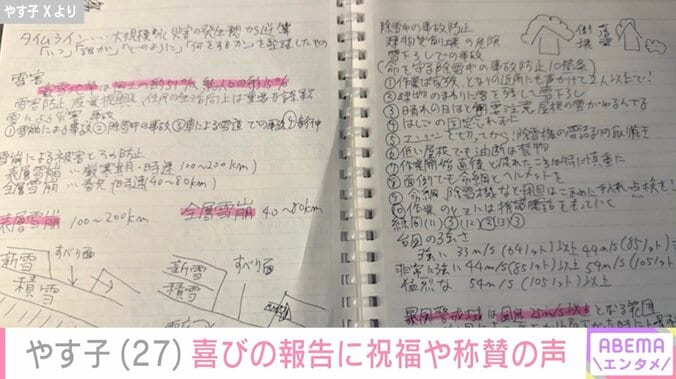 やす子 Xより
タイムライン…大規模水災害の発生前から逆算
「いつ」「誰が」「どのように」「何をするか」を整理したもの
雪害
豪雪地帯は国土の約51% 総人口の約15%
雪害防止 産業振興 住民の生活向上は重要な課題
雪による災害 事故
①雪崩による事故②除雪中の事故③車による雪道での事故④
雪崩による被害とその防止
表層雪崩 … 厳寒 1月 時速 100〜200km)
全層雪崩 … 春先 時速 40〜80km)
表層雪崩 100〜200km
全層雪崩 40〜80km
新雪
積雪
すべり面
新雪
積雪
すべり面
除雪中の事故防止
建物 倒壊の危険
雪下ろしでの事故
命を守る除雪中の事故防止10箇条
①作業は家族、となり近所にも声かけて2人以上で!
②建物のまわりに雪を残して雪下ろし
③晴れの日ほど要注意 屋根の雪がゆるんでる
④はしごの固定を忘れずに
⑤エンジンを切ってから!除雪機の雪詰まりの取り除き
⑥低い屋根でも油断は禁物
⑦作業開始直後と疲れたころは特に慎重に
⑧面倒でも命綱とヘルメットを
⑨命綱、除雪機など用具はこまめに手入れ・点検を!
⑩作業のときには携帯電話をもっていく
台風の強さ
強い 33m/s (64ノット)以上 44m/s (85ノット)
非常に強い 44m/s (85ノット)以上 54m/s (105ノット)
猛烈な 54m/s (105ノット)以上
暴風警戒域は風速25m/s以上となる範囲
倒壊
落雪
やす子(27) 喜びの報告に祝福や称賛の声
ABEMA
エンタメ